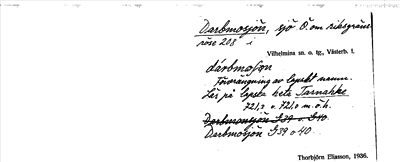 Darbmosjön, sjö Ö. om riksgräns
röse 208 i
Vilhelmina sn. o. tg., Västerb. l.
darbmosøn
Förvrängning av lapskt namn.
Lär på lapska heta Tarnahke
721,3 o. 721,0 m.ö.h.
Darbmonsjön G39 o. G40.
Darbmosjön G39 o 40.
Thorbjörn Eliasson, 1936.